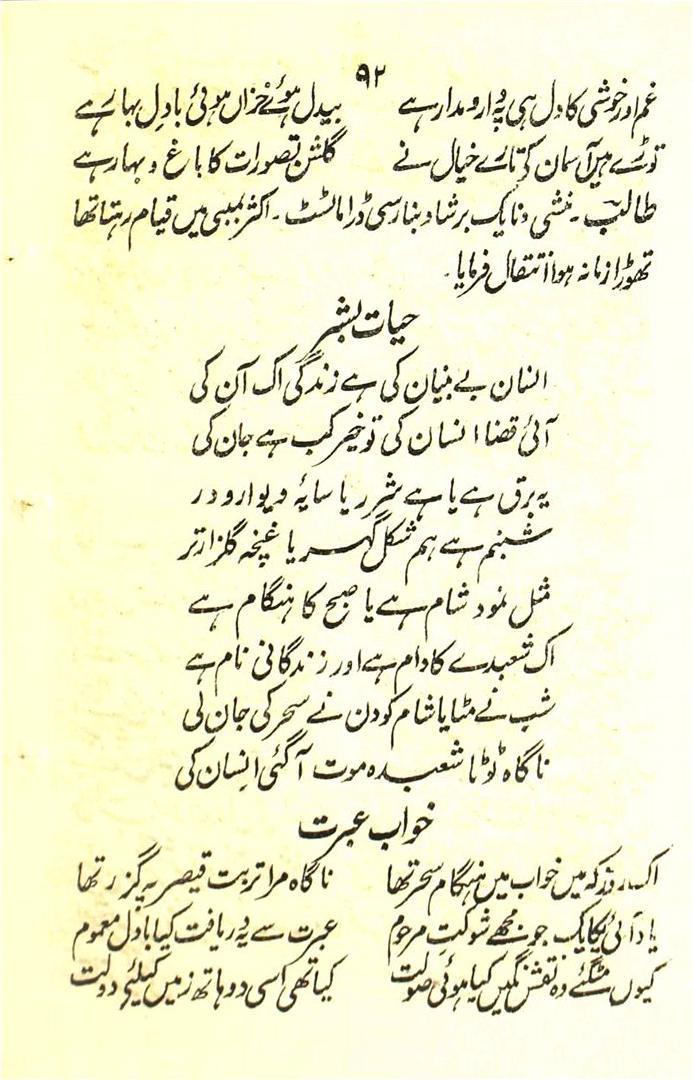 ۹۲
غم اور خوشی کا دل ہی پہ دارومدار ہے بیدل ہوئے خزاں ہوئی بادل بہار ہے
توڑے ہیں آسمان کے تارے خیال نے گلشن تصورات کا باغ و بہار ہے
طالب۔ منشی ونایک پرشاد بنارسی ڈرامائسٹ۔ اکثر بمبئی میں قیام رہتا تھا
تھوڑا زمانہ ہوا انتقال فرمایا۔
حیات بشر
انسان بے بنیان کی ہے زندگی اک آن کی
آئی قضا انسان کی تو خیر کب ہے جان کی
یہ برق ہے یا ہے شرر یا سایۂ دیوار و در
شبنم ہے ہم شکل گہر یا غنچہ گلزار تر
مثل نمود شام ہے یا صبح کا ہنگام ہے
اک شعبدے کا دام ہے اور زندگانی نام ہے
شب نے مٹایا شام کو دن نے سحر کی جان لی
ناگاہ ٹوٹا شعبدہ موت آگئی انسان کی
خواب عبرت
اک روز کہ میں خواب میں ہنگام سحر تھا ناگاہ مرا تربت قیصر پہ گزر تھا
یاد آئی یکایک جو مجھے شوکت مرحوم عبرت سے یہ دریافت کیا بادل مغموم
کیوں مٹ گئے وہ نقش نگیں کیا ہوئی صولت کیا تھی اسی دو ہاتھ زمیں کیلئے دولت